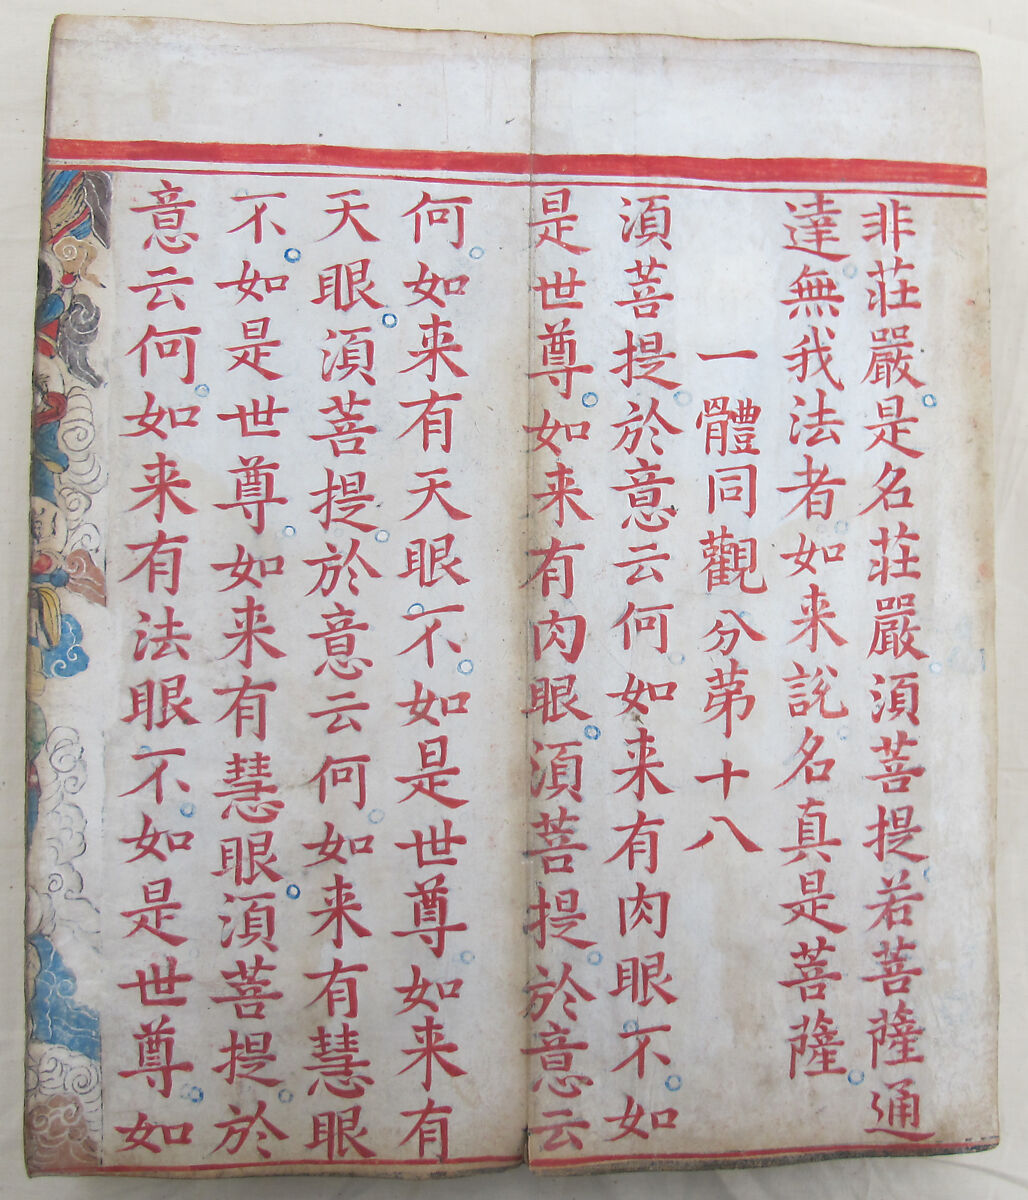 非莊嚴是名莊嚴須菩提若菩薩通
達無我法者如来說名真是菩薩
一體同觀分苐十八
須菩提於意云何如来有肉眼不如
是世尊如来有肉眼須菩提於意云
何如来有天眼不如是世尊如来有
天眼須菩提於意云何如来有慧眼
不如是世尊如来有慧眼須菩提於
意云何如来有法眼不如是世尊如